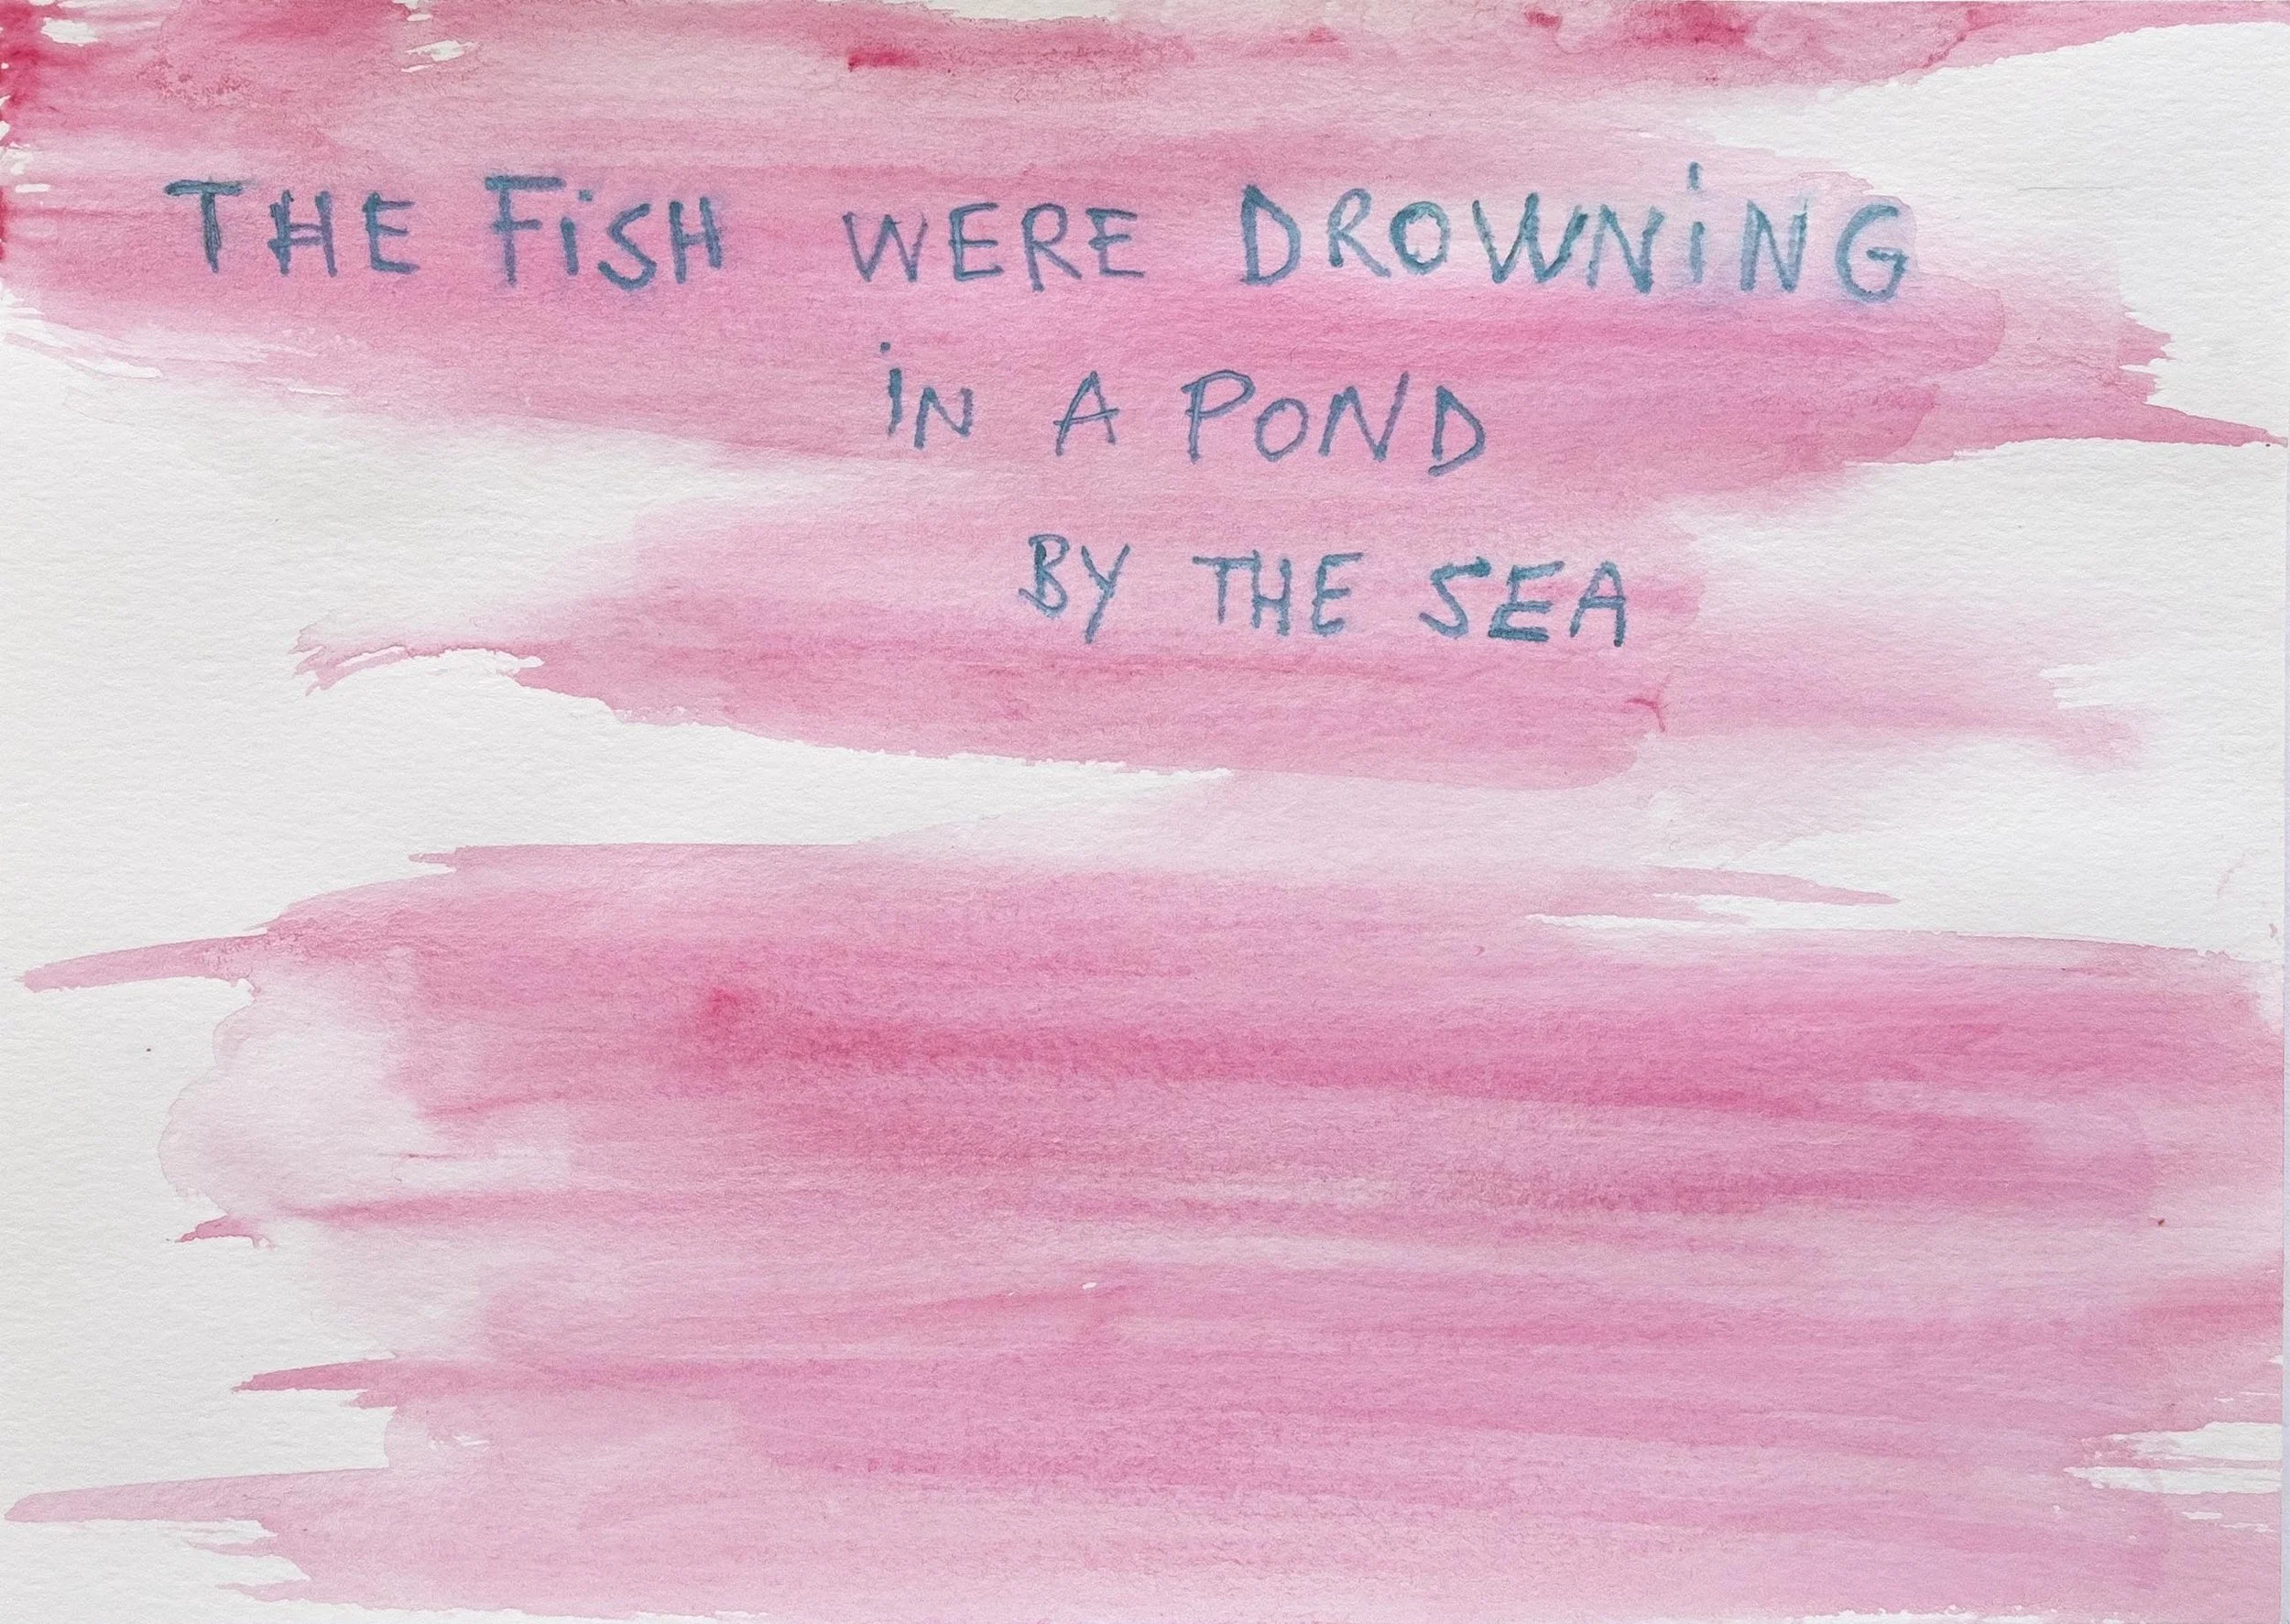 THE FiSH WERE DROWNiNG
iN A POND
BY THE SEA